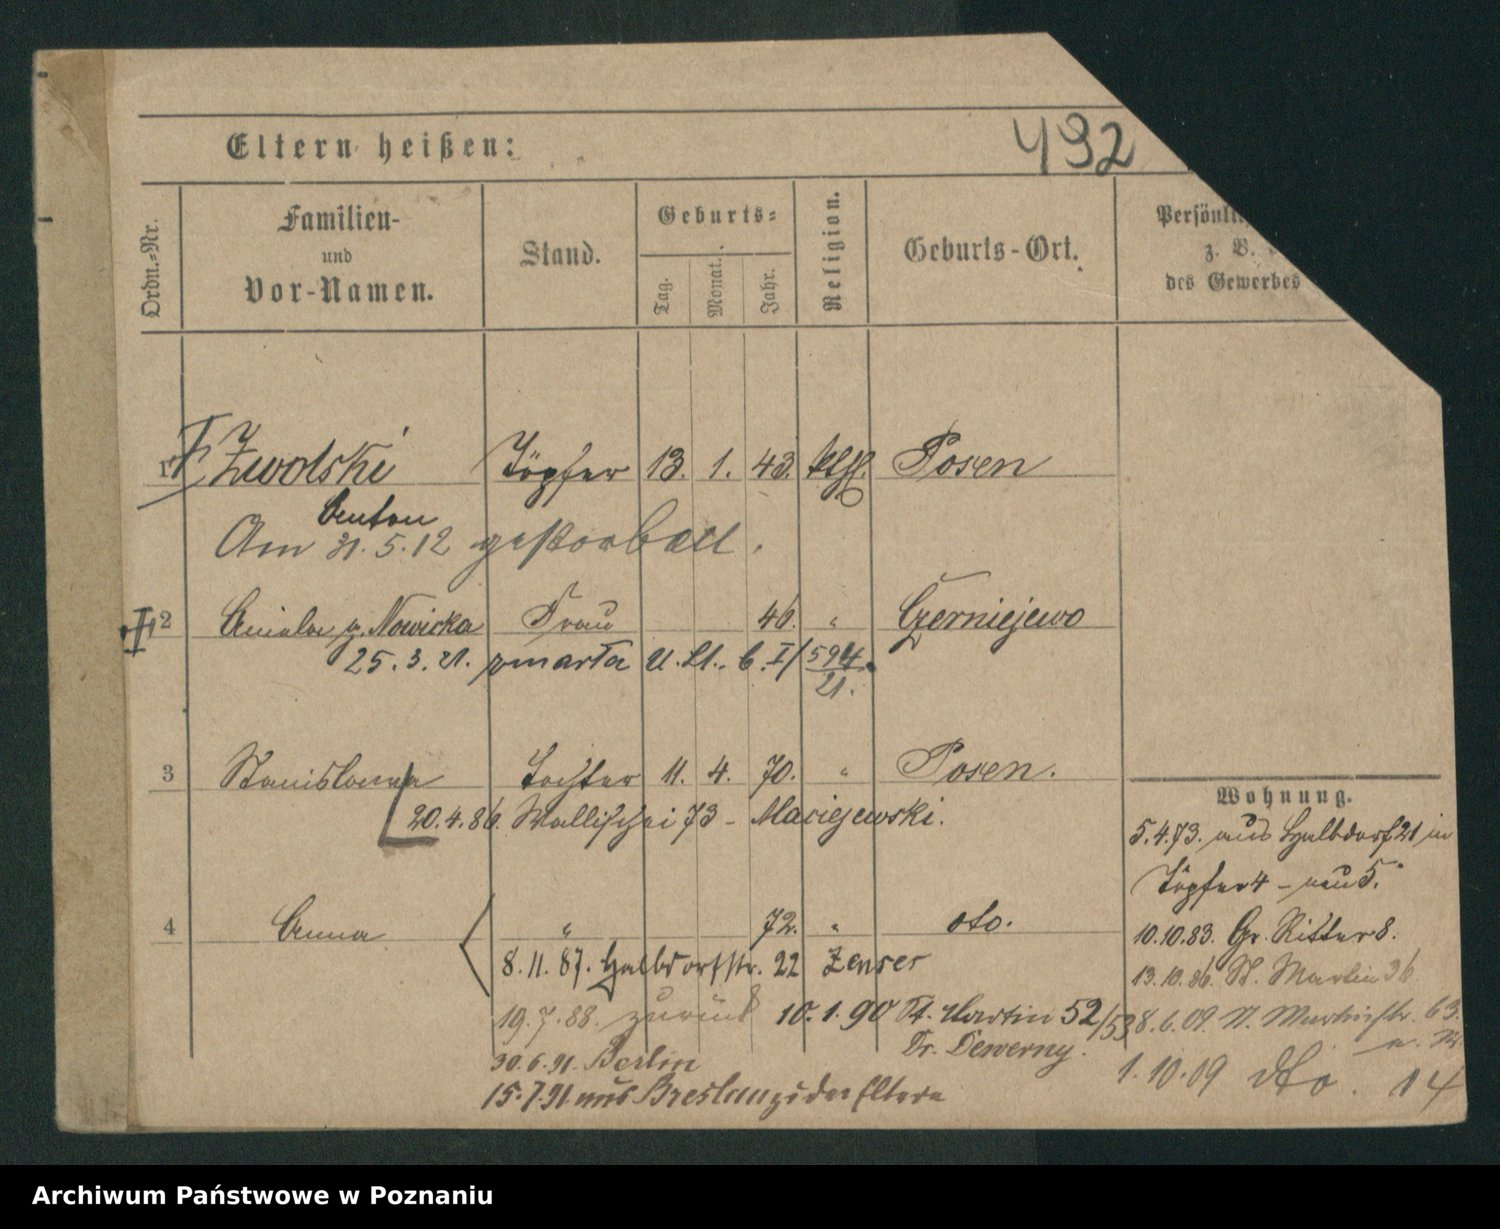 Eltern heißen:
492
Ordn.-Nr.
Familien-
und
Vor-Namen.
Stand.
Geburts-
Tag.
Monat.
Jahr.
Religion.
Geburts-Ort.
Persönli
z. B.
des Gewerbes
1 Zwolski Töpfer 13. 1. 43. kthl. Posen
Anton
Am 31.5.12 gestorben.
2 Aniela g. Nowicka Frau 46. " Czerniejewo
25.3.21. zmarła U.St. b.I/594
21.
3 Stanislawa Tochter 11. 4. 70. " Posen.
20.4.86. Wallischei 73 - Maciejewski.
4 Anna " 72. " dto.
8.11.87. Halbdorfstr. 22 Zenser
19.7.88. zurück 10.1.90 St. Martin 52/53
Dr. Dewerny.
30.6.91. Berlin
15.7.91. aus Breslau zu den Eltern
Wohnung.
5.4.73. aus Halbdorf 21 in
Töpfer 4 - neu 5.
10.10.83. Gr. Ritter 8.
13.10.86. St. Martin 36
8.6.09. St. Martinstr. 63.
1.10.09 dto. 14
Archiwum Państwowe w Poznaniu